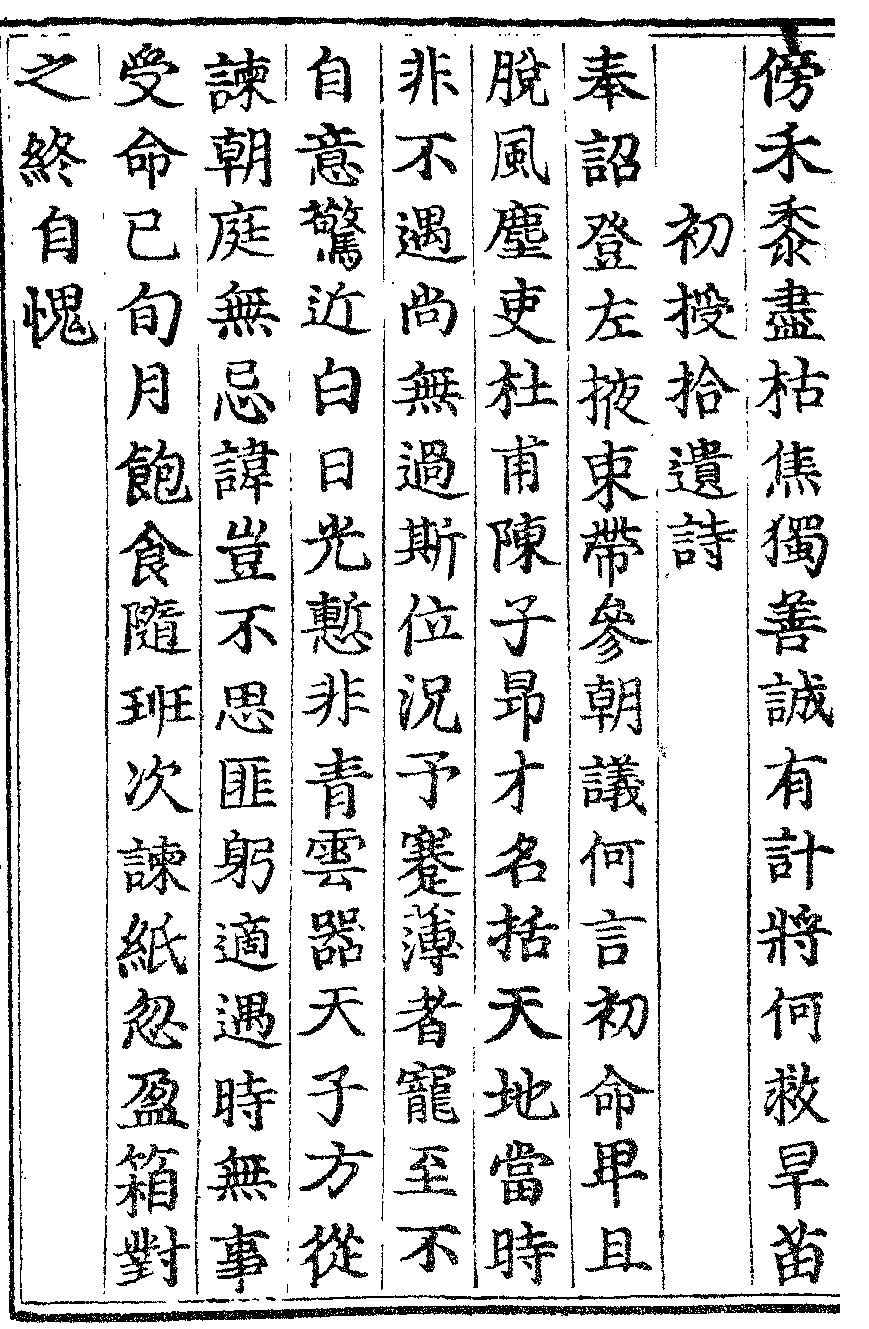 傍禾黍盡枯焦獨善誠有計將何救旱苗
初授拾遺詩
奉詔登左掖束帶參朝議何言初命卑且
脫風塵吏杜甫陳子昂才名括天地當時
非不遇尚無過斯位況予蹇薄者寵至不
自意驚近白日光慙非青雲器天子方從
諫朝庭無忌諱豈不思匪躬適遇時無事
受命已旬月飽食隨班次諫紙忽盈箱對
之終自愧